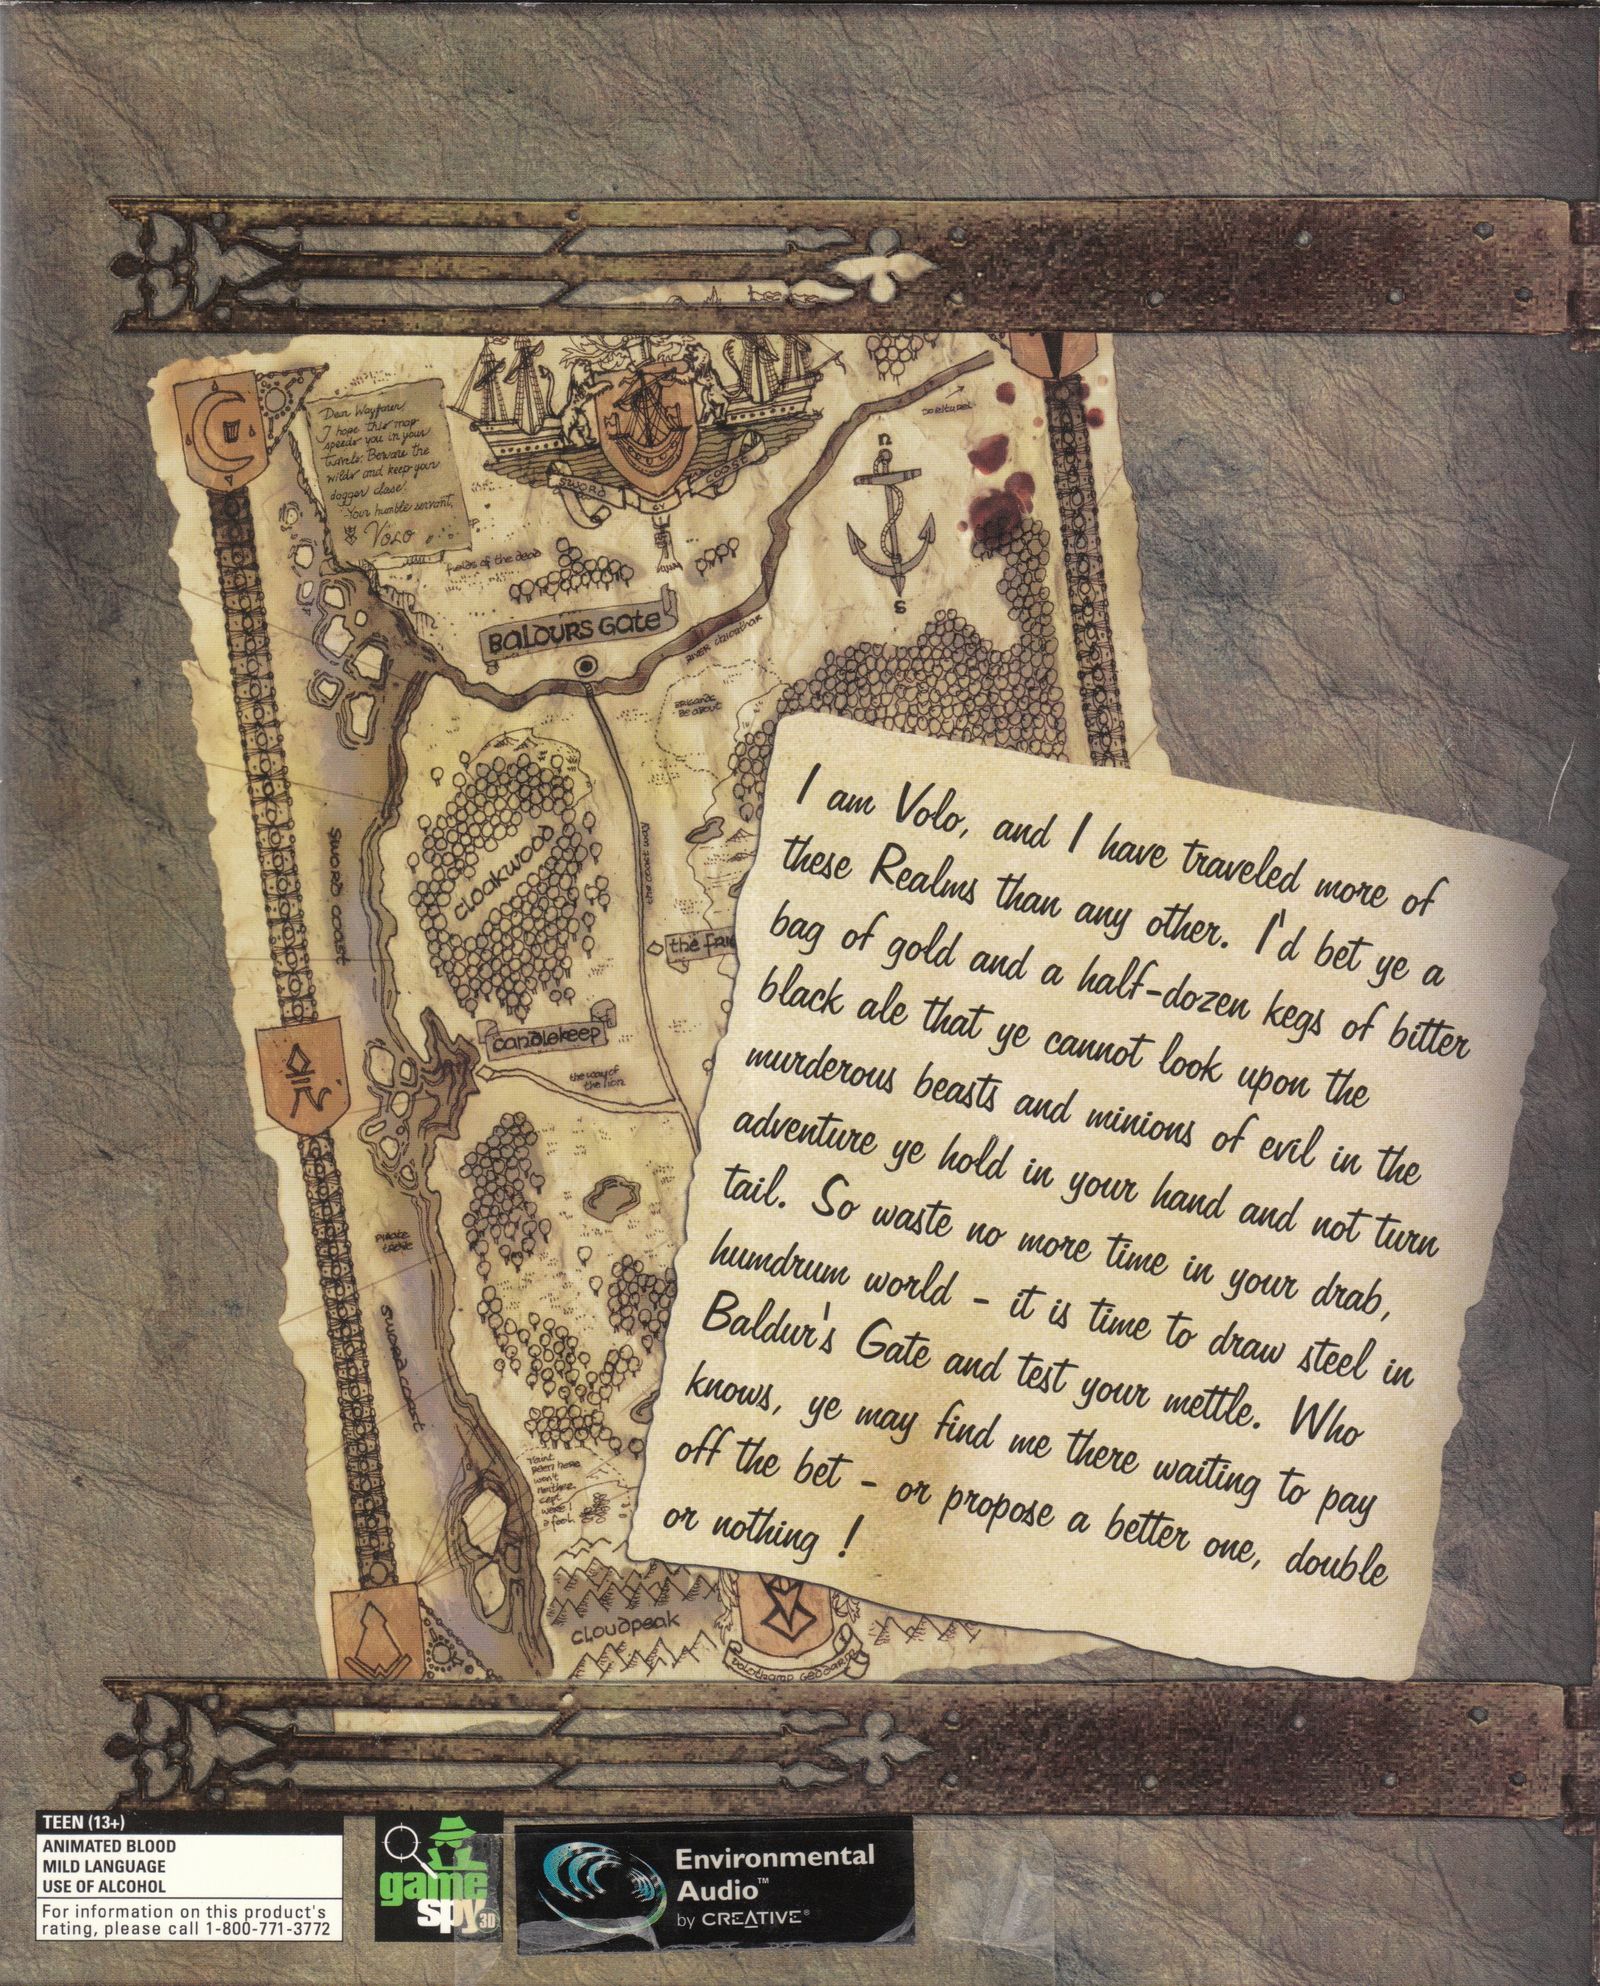 Dear Wayfarer,
I hope this map
speeds you in your
travels. Beware the
wilds and keep your
dagger close.
Your humble servant,
Volo
SWORD
COAST
n
s
fields of the dead
BALDURS GATE
RIVER chionthar
Brigands
Be about
CLOAKWOOD
the coast way
SWORD COAST
the frie
candlekeep
the way of
the lion
pirate
SWORD COAST
CLOUDPEAK
volothamp geddarm
I am Volo, and I have traveled more of
these Realms than any other. I'd bet ye a
bag of gold and a half-dozen kegs of bitter
black ale that ye cannot look upon the
murderous beasts and minions of evil in the
adventure ye hold in your hand and not turn
tail. So waste no more time in your drab,
humdrum world - it is time to draw steel in
Baldur's Gate and test your mettle. Who
knows, ye may find me there waiting to pay
off the bet - or propose a better one, double
or nothing !
TEEN (13+)
ANIMATED BLOOD
MILD LANGUAGE
USE OF ALCOHOL
For information on this product's
rating, please call 1-800-771-3772
game
spy 3D
Environmental
Audio™
by CREATIVE®